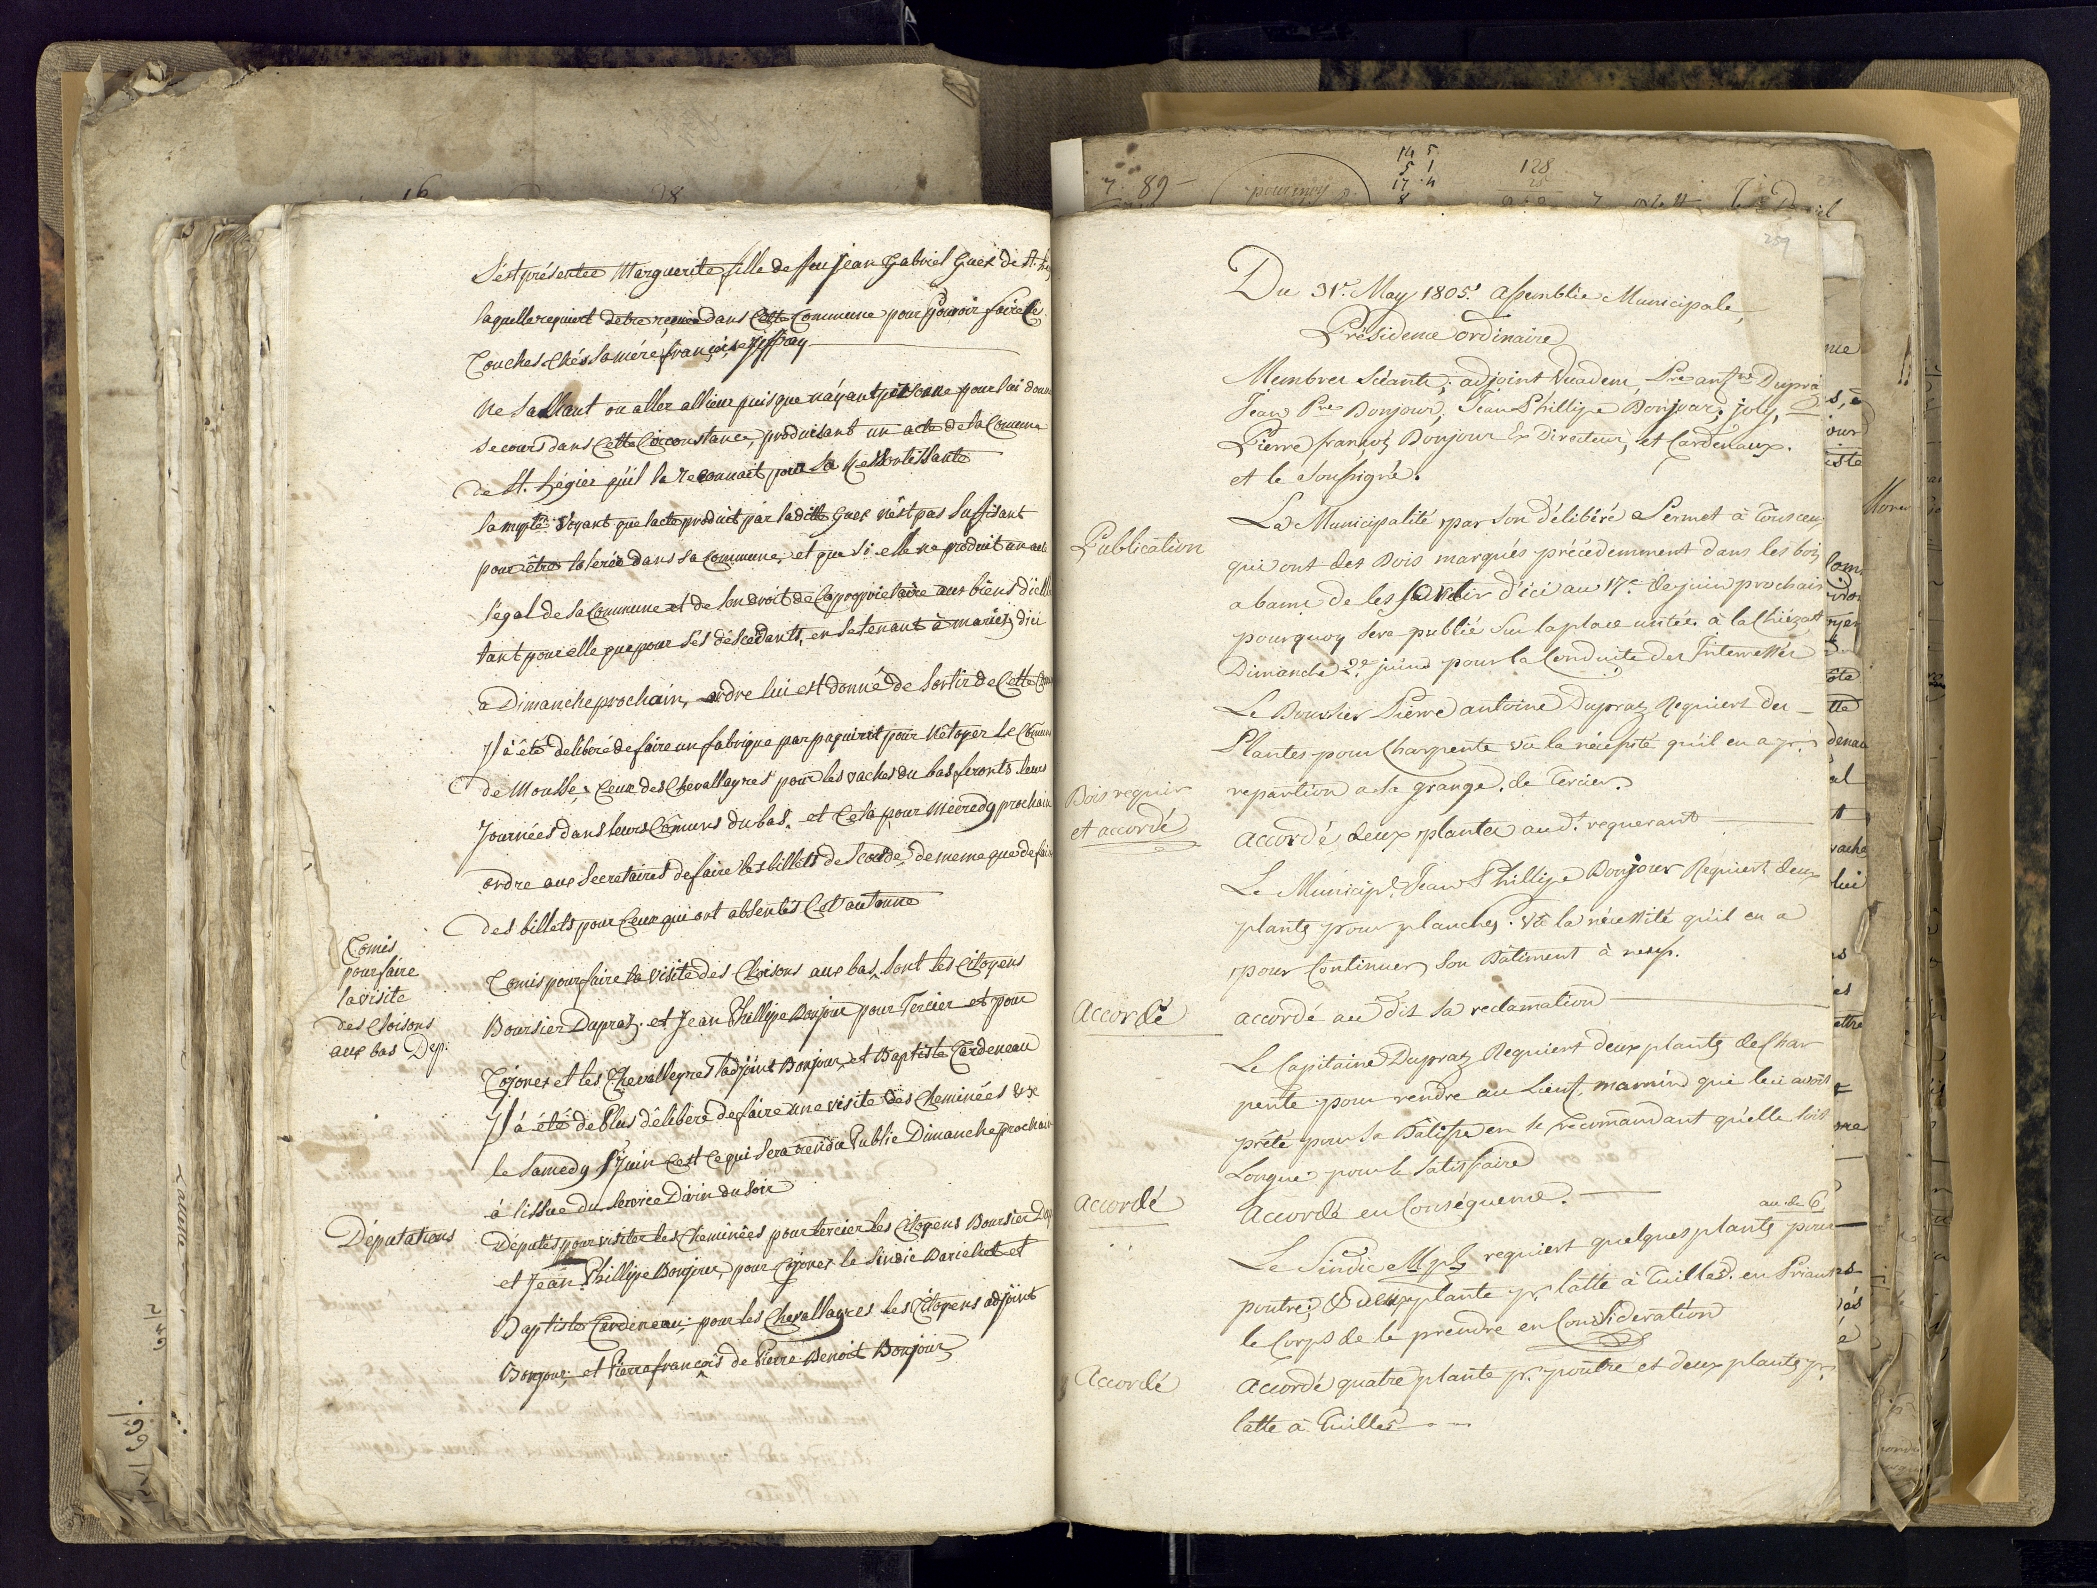 S'est présentée Marguerite fille de feu Jean Gabriel Guex de St.
laquelle requiert detre reçuë dans Cette Commune pour Pouvoir faire Ces
Couches Chés Sa mére françoise
Ne Sachant ou aller allieur puis que n'áyant persone pour lui donner
Secours dans Cette Circonstance, produisant un acte de la Comune
de St. Légier qu'il la reconnait pour Sa Ressortissante
la mplté Voyant que lacte produit par ladite Guex n'est pas Suffisant
pour être tolerée dans sa Commune, et que Si elle ne produit un acte
légal de Sa Commune et de Son droit de Coproprietaire aux biens d'icelle
tant pour elle que pour Sés déscedants, en Se tenant à marier, d'ici
a Dimanche prochain, ordre lui est donné de Sortir de Cette
Il à été deliberé de faire un fabrique par paquirit pour Nétoyer Le Comun
de Mousse, Ceux des Chevallayres pour les vaches du bas feronts leurs
Journées dans leurs Cõmuns du bas. et Cela pour Mécredy prochain
ordre aux Secretaires de faire les billets de de meme que de faire
des billets pour Ceux qui ont absentés Cet autonne
Comis
pour faire
la visite
des Cloisons
aux bas Dep.
Comis pour faire la visite des Cloisons aux bas, sont les Citoyens
Boursier Dupraz. et Jean Phillipe Bonjour pour Tercier et pour
Cojonex et les Chevalleyres l'adjoint Bonjour, et Baptiste Cardeneau
Il à été de Plus délibéré de faire une visite des Cheminées &x
le Samedy 1r. Juin C'est Ce qui Sera rendu Public Dimanche prochain
à lissue du Service Divin du Soir
Députations
Députés pour visiter les Cheminées pour tercier les Citoyens Boursier
et Jean Phillipe Bonjour, pour Cojonex le Sindic Dariel et
Baptiste Cardeneau; pour les Chevallayres les Citoyens adjoint
Bonjour; et Pierre françois de Pierre Benoit Bonjour
259
Du 31e. May 1805. assemblée Municipale,
Présidence ordinaire
Membres Séants; adjoint Vuadens, Pre anth.ne Dupra
Jean Pre Bonjour, Jean Phillipe Bonjour, joly,
Pierre françois Bonjour Ex Directeur, et Cardenaux.
et le Soussigné.
Publication
La Municipalité par Son délibéré Permet à Tous Ceux
qui ont des Bois marqués précédemment dans les bois
a bamp de les Sortir d'ici au 17e. de juin prochain
pourquoy Sera publié Sur la place usitée à la Chiézaz
Dimanche 2e. juin pour la Conduite des Interressés
Bois requis
et accordé
Le Boursier Pierre antoine Dupraz Requiert des
Plantes pour Charpente vû la nécessité qu'il en a pr.
reparation a sa grange. de Tercier.
accordé deux plantes aud.t requerant
Le Municipl. Jean Phillipe Bonjour Requiert deux
plants pour planches. vû la nécessité qu'il en a
pour Continuer Son Bâtiment à neuf.
Accordé
accordé au dit sa reclamation
Le Capitaine Dupraz Requiert deux plants de Char
pente pour rendre au Lieut. mamin qui lui avoit
prété pour Sa Batisse en Se recomandant qu'elle soit
Longue pour le Satisfaire
accordé
accordé en Conséquence.
au de 6
Le Sindic Mpl. requiert quelques plants pour
poutre, & deux plante pr. latte à Tuilles. en Priant
le Corps de le prendre en Consideration
Accordé
accordé quatre plante pr. poutre et deux plants pr.
latte à Tuilles